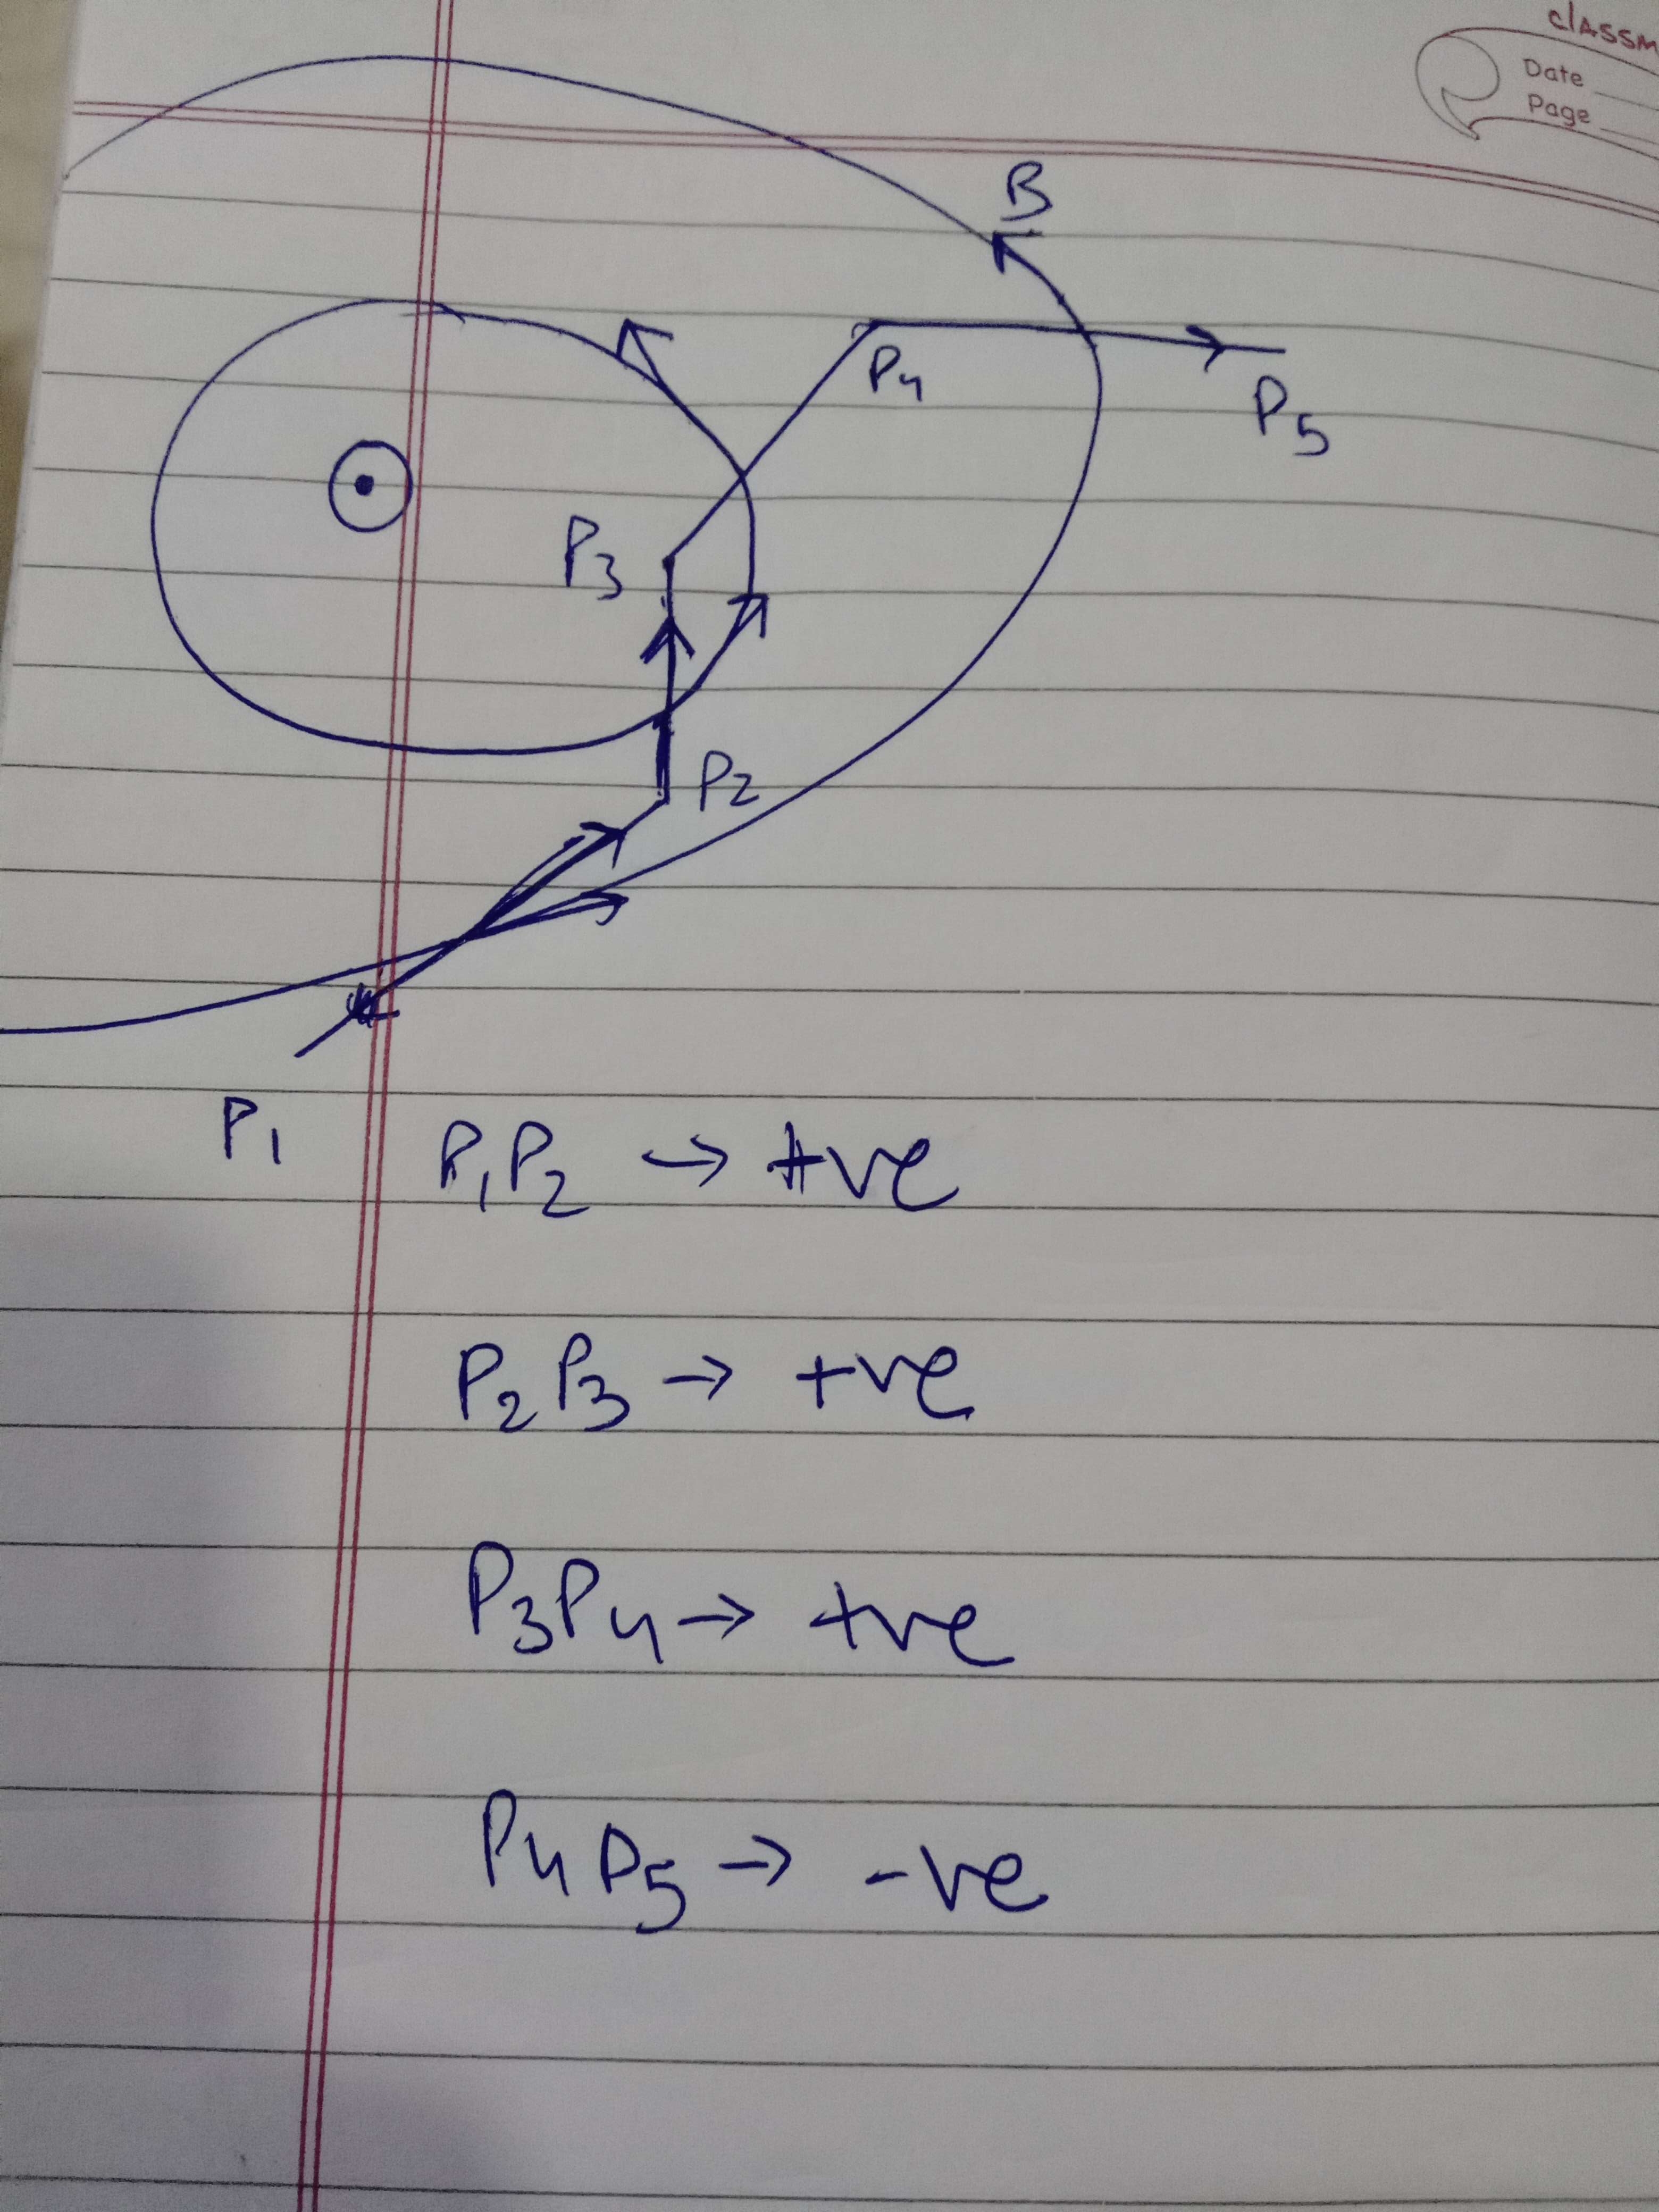 classm
Date
Page
B
P4
P5
P3
P2
P1
P1P2 → +ve
P2P3 → +ve
P3P4 → +ve
P4P5 → -ve